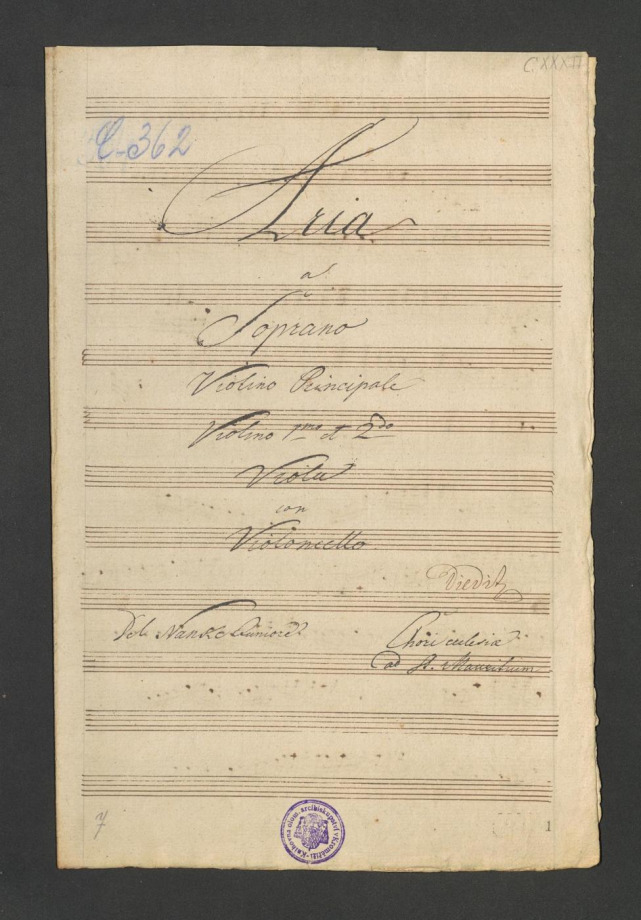 C. XXXII
A-362
Aria
a
Soprano
Violino Principale
Violino 1mo et 2do
Viola
con
Violoncello
Diedit
Del Juniore Chori eclesia
ad St. Mauritium
Knihovna olom. arcibiskupství v Kroměříži
7
1